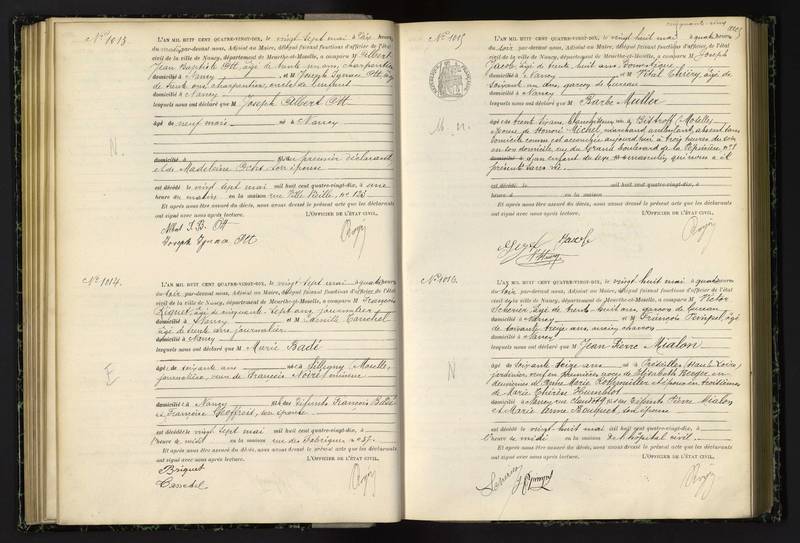 No 1013.
L'AN MIL HUIT CENT QUATRE-VINGT-DIX, le vingt sept mai à Dix heures
du matin par-devant nous, Adjoint au Maire, délégué faisant fonctions d'officier de l'état
civil de la ville de Nancy, département de Meurthe-et-Moselle, a comparu M Gilbert
Jean Baptiste Ott, âgé de trente un ans, charpentier
domicilié à Nancy et M Joseph Ignace Ott âgé
de ans, charpentier, oncle de l'enfant
domicilié à Nancy
lesquels nous ont déclaré que M Joseph Albert Ott
âgé de neuf mois né à Nancy
N.
domicilié à fils du premier déclarant
et de Madeleine son épouse
est décédé le vingt sept mai mil huit cent quatre-vingt-dix, à une
heure du matin en la maison rue Ville Vieille, no 123
Et après nous être assuré du décès, nous avons dressé le présent acte que les déclarants
ont signé avec nous après lecture. L'OFFICIER DE L'ÉTAT CIVIL,
J. B. Ott
Joseph Ignace Ott
No 1014.
L'AN MIL HUIT CENT QUATRE-VINGT-DIX, le vingt sept mai à quatre heures
du soir par-devant nous, Adjoint au Maire, délégué faisant fonctions d'officier de l'état
civil de la ville de Nancy, département de Meurthe-et-Moselle, a comparu M François
âgé de cinquante sept ans, journalier
domicilié à Nancy et M
âgé de trente ans, journalier
domicilié à Nancy
lesquels nous ont déclaré que M Marie Badé
âgé de soixante ans né à Silligny Moselle,
journalière, veuve de François Noiré
E
domicilié à Nancy fils des défunts François Badé
et Françoise Geoffroy, son épouse
est décédé le vingt sept mai mil huit cent quatre-vingt-dix, à
heure de midi en la maison rue des Fabriques no 37
Et après nous être assuré du décès, nous avons dressé le présent acte que les déclarants
ont signé avec nous après lecture. L'OFFICIER DE L'ÉTAT CIVIL,
Briquet
cinquante cinq
No 1015.
L'AN MIL HUIT CENT QUATRE-VINGT-DIX, le vingt huit mai à quatre heures
du soir par-devant nous, Adjoint au Maire, délégué faisant fonctions d'officier de l'état
civil de la ville de Nancy, département de Meurthe-et-Moselle, a comparu M Joseph
Jacob, âgé de trente huit ans, Domestique
domicilié à Nancy et M Vital Thiéry âgé de
soixante un ans, garçon de bureau
domicilié à Nancy
lesquels nous ont déclaré que M Barbe Muller
âgé de trente six ans, blanchisseuse né à Bistroff (Moselle)
épouse de Honoré Michel, marchand ambulant, absent, sans
domicile connu est accouchée aujourd'hui à trois heures du soir
en son domicile, rue du Grand boulevard de la Pépinière, no 8
domicilié à d'un enfant de sexe masculin, qui nous a été
présenté sans vie.
est décédé le mil huit cent quatre-vingt-dix, à
heure en la maison
Et après nous être assuré du décès, nous avons dressé le présent acte que les déclarants
ont signé avec nous après lecture. L'OFFICIER DE L'ÉTAT CIVIL,
No 1016.
L'AN MIL HUIT CENT QUATRE-VINGT-DIX, le vingt huit mai à quatre heures
du soir par-devant nous, Adjoint au Maire, délégué faisant fonctions d'officier de l'état
civil de la ville de Nancy, département de Meurthe-et-Moselle, a comparu M Victor
âgé de trente huit ans, garçon de bureau
domicilié à Nancy et M François âgé
de soixante treize ans, ancien charron
domicilié à Nancy
lesquels nous ont déclaré que M Jean Pierre Mialon
âgé de soixante seize ans né à (Haute Loire)
jardinier, veuf en premières noces de Elisabeth Berger en
deuxièmes de Anne Marie et époux en troisièmes
de Marie Thérèse Humblot
N
domicilié à Nancy fils des défunts Pierre Mialon
et Marie Anne Bouquet, son épouse
est décédé le vingt huit mai mil huit cent quatre-vingt-dix, à
heure de midi en la maison de l'hôpital civil
Et après nous être assuré du décès, nous avons dressé le présent acte que les déclarants
ont signé avec nous après lecture. L'OFFICIER DE L'ÉTAT CIVIL,